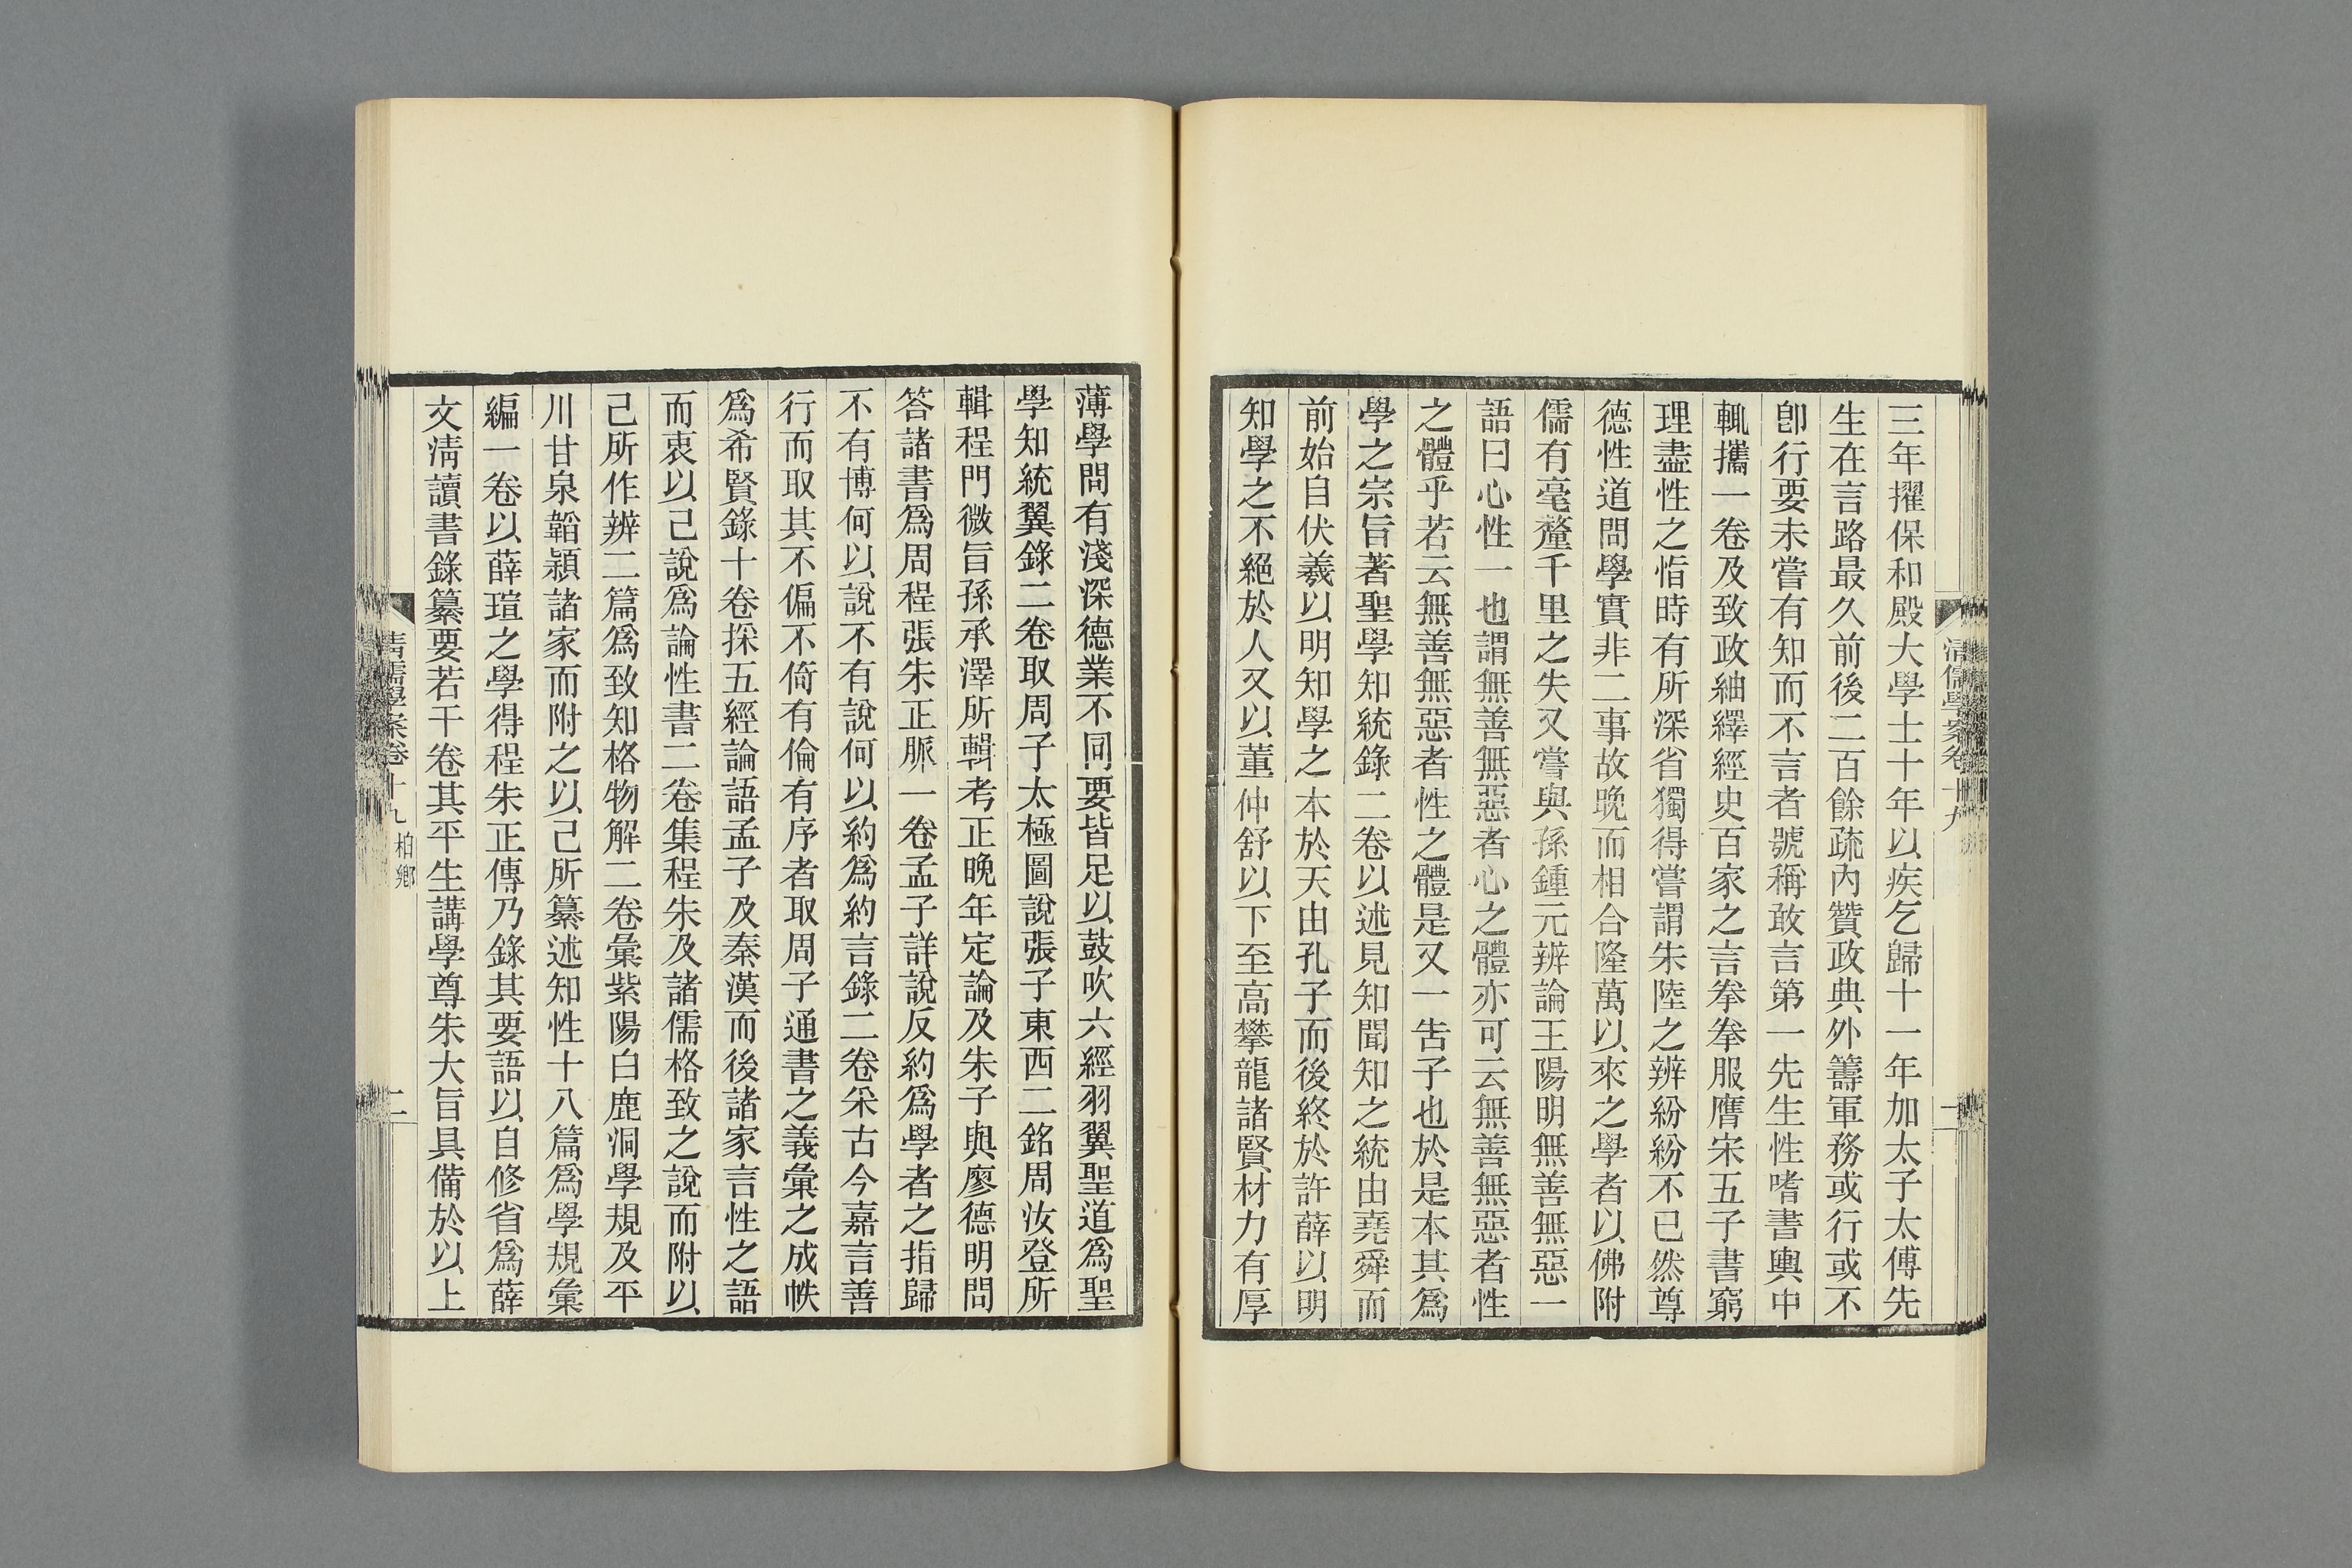 三年擢保和殿大學士十年以疾乞歸十一年加太子太傅先
生在言路最久前後二百餘疏內贊政典外籌軍務或行或不
卽行要未嘗有知而不言者號稱敢言第一先生性嗜書輿中
輒攜一卷及致政紬繹經史百家之言拳拳服膺宋五子書窮
理盡性之恉時有所深省獨得嘗謂朱陸之辨紛紛不已然尊
德性道問學實非二事故晚而相合隆萬以來之學者以佛附
儒有毫釐千里之失又嘗與孫鍾元辨論王陽明無善無惡一
語曰心性一也謂無善無惡者心之體亦可云無善無惡者性
之體乎若云無善無惡者性之體是又一吿子也於是本其爲
學之宗旨著聖學知統錄二卷以述見知聞知之統由堯舜而
前始自伏羲以明知學之本於天由孔子而後終於許薛以明
知學之不絕於人又以董仲舒以下至高攀龍諸賢材力有厚
薄學問有淺深德業不同要皆足以鼓吹六經羽翼聖道爲聖
學知統翼錄二卷取周子太極圖說張子東西二銘周汝登所
輯程門微旨孫承澤所輯考正晚年定論及朱子與廖德明問
答諸書爲周程張朱正脈一卷孟子詳說反約爲學者之指歸
不有博何以說不有說何以約爲約言錄二卷采古今嘉言善
行而取其不偏不倚有倫有序者取周子通書之義彙之成帙
爲希賢錄十卷採五經論語孟子及秦漢而後諸家言性之語
而衷以己說爲論性書二卷集程朱及諸儒格致之說而附以
己所作辨二篇爲致知格物解二卷彙紫陽白鹿洞學規及平
川甘泉韜潁諸家而附之以己所纂述知性十八篇爲學規彙
編一卷以薛瑄之學得程朱正傳乃錄其要語以自修省爲薛
文淸讀書錄纂要若干卷其平生講學尊朱大旨具備於以上
淸儒學案卷十九 柏鄉
二